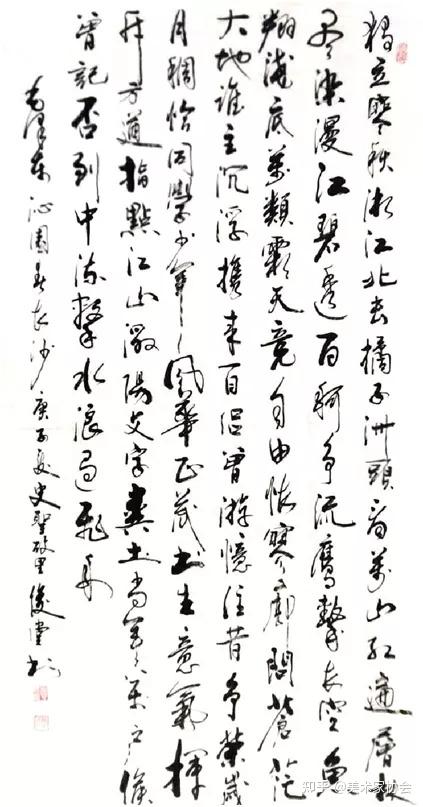 獨立寒秋湘江北去橘子洲頭看萬山红遍層林
尽染漫江碧透百舸争流鷹擊長空魚
翔淺底萬類霜天竞自由悵寥廓問蒼茫
大地誰主沉浮携来百侣曾游憶往昔峥嵘歲
月稠恰同學少年風華正茂书生意氣揮
斥方遒指點江山激揚文字糞土当年萬户侯
曾記否到中流擊水浪遏飛舟
毛澤东沁園春長沙庚子夏史聖故里俊堂书
知乎 @美术家协会